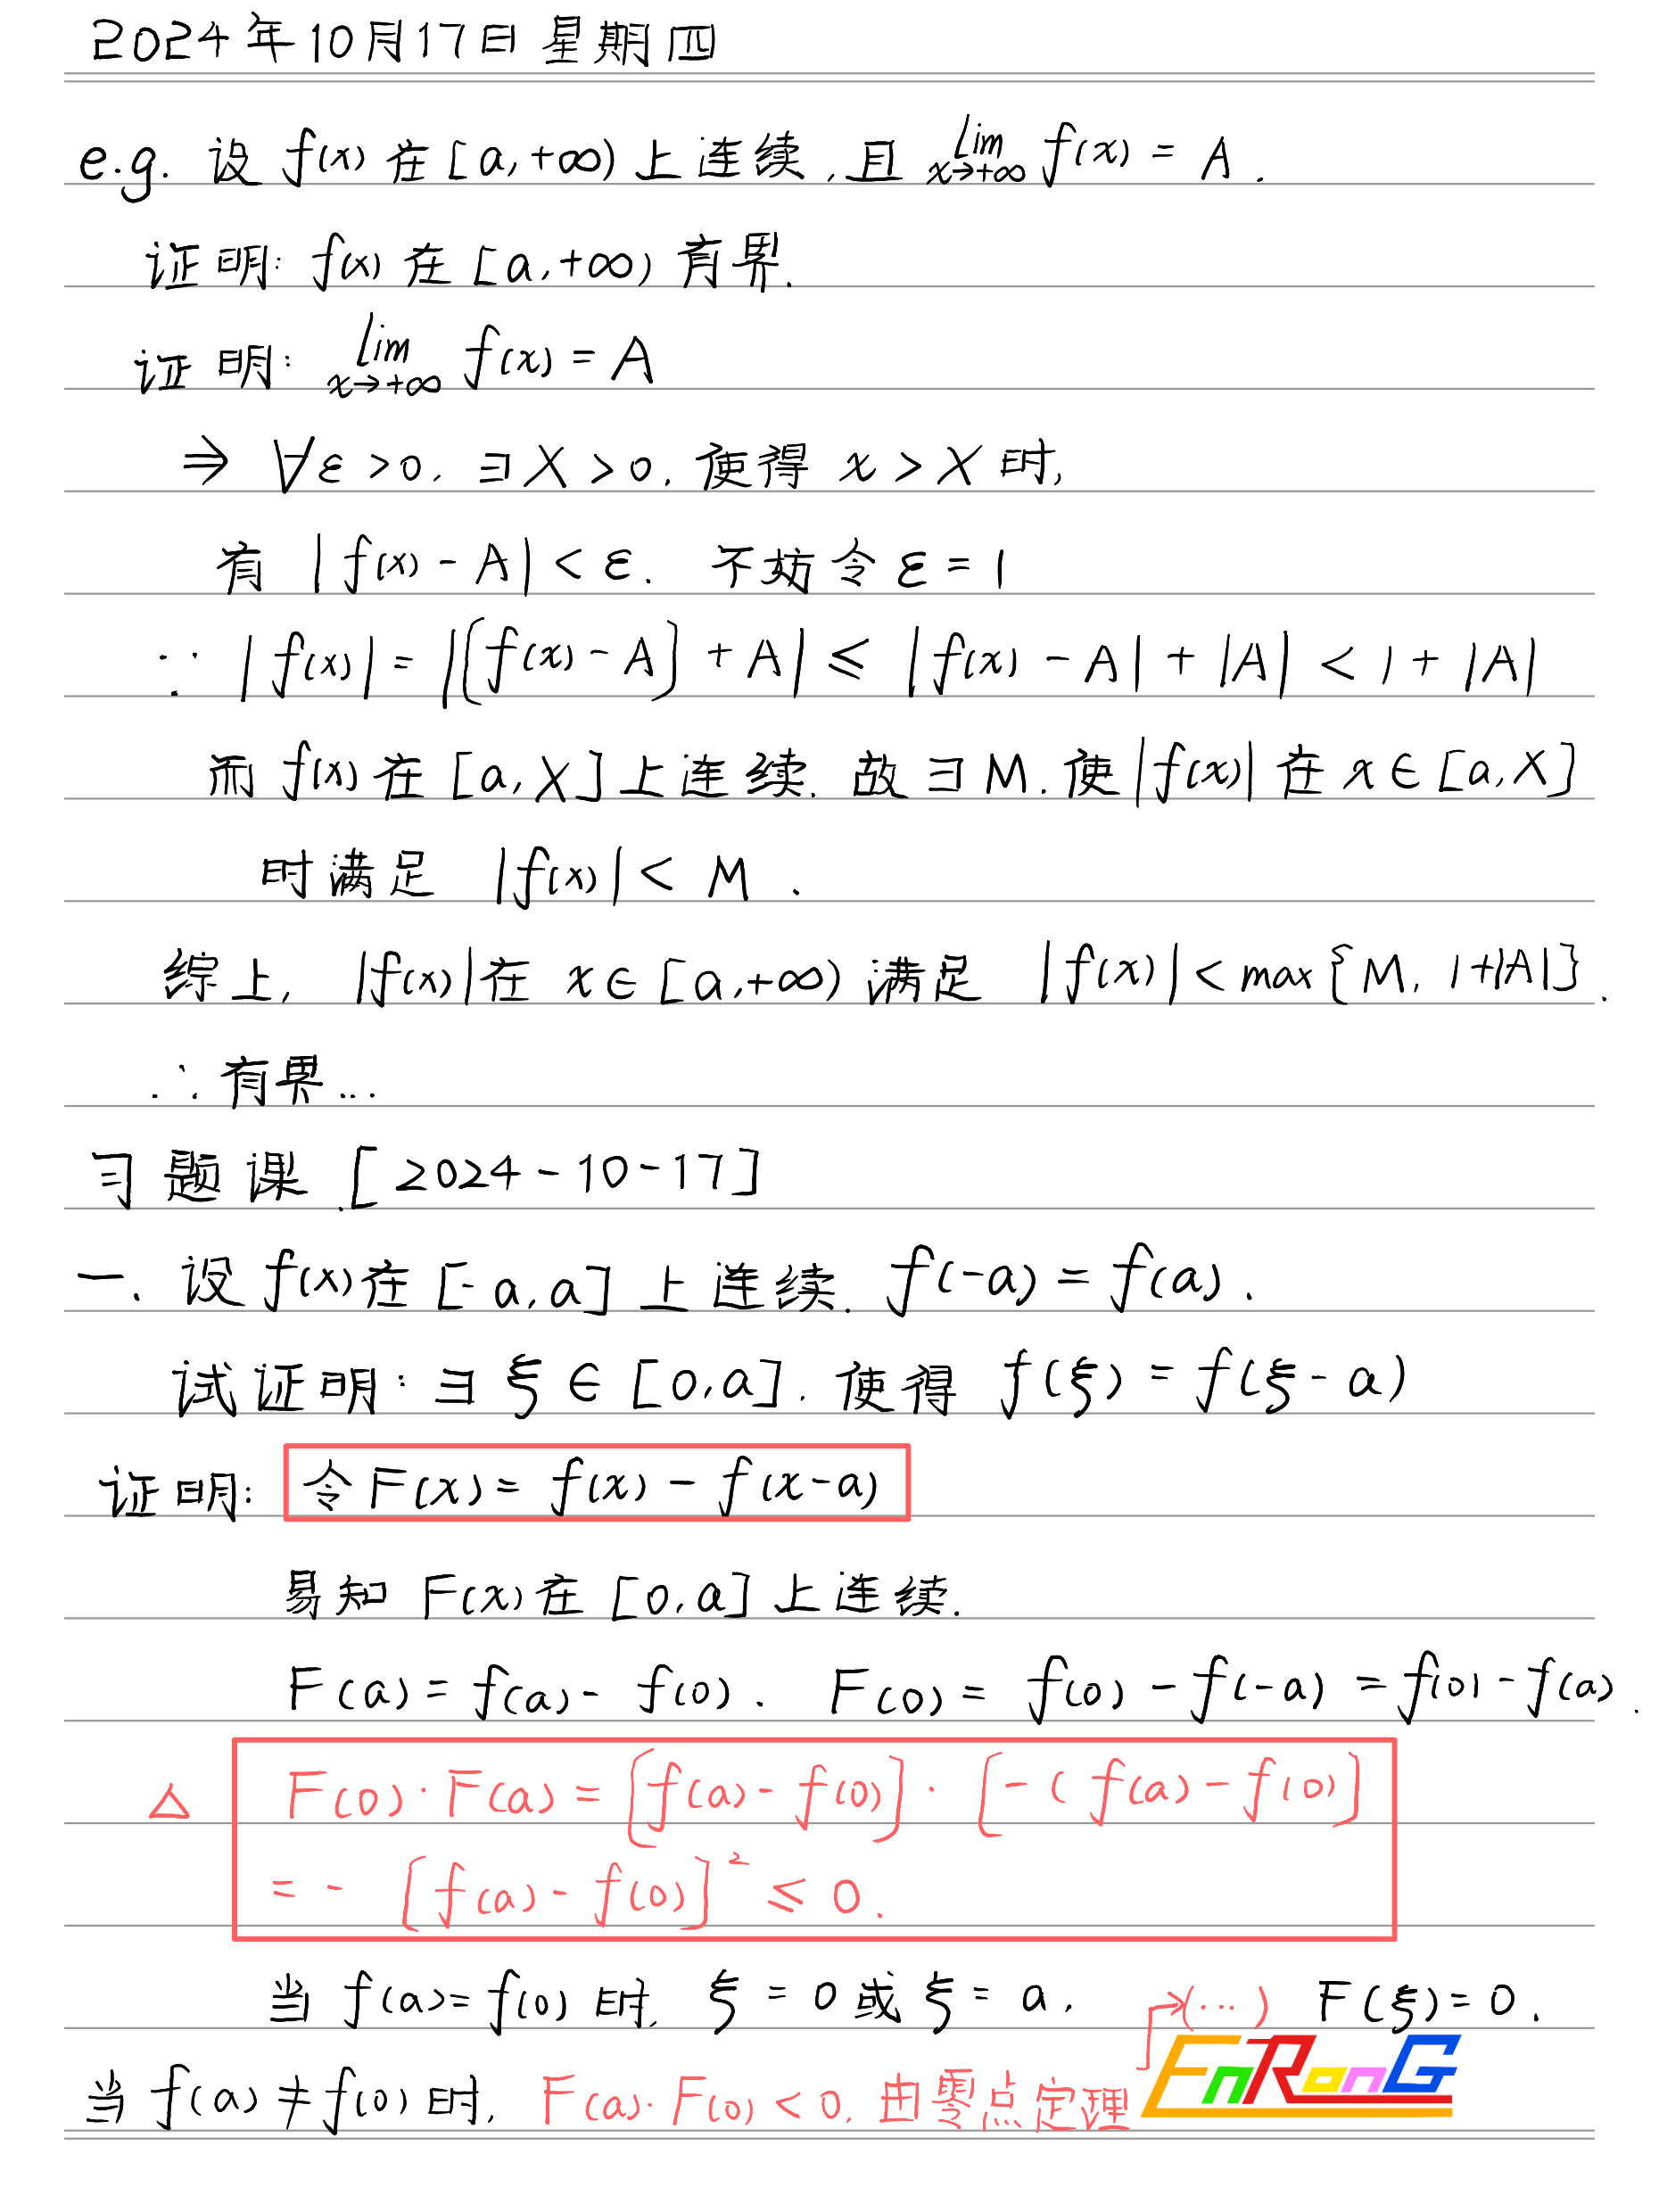 2024年10月17日 星期四
e.g. 设 f(x) 在 [a,+∞) 上连续,且 lim x→+∞ f(x) = A.
证明: f(x) 在 [a,+∞) 有界.
证明: lim x→+∞ f(x) = A
⇒ ∀ε>0. ∃X>0. 使得 x>X 时,
有 |f(x)-A|<ε. 不妨令 ε=1
∵ |f(x)| = |[f(x)-A]+A| ≤ |f(x)-A|+|A| < 1+|A|
而 f(x) 在 [a,X] 上连续. 故∃M. 使|f(x)| 在 x∈[a,X]
时满足 |f(x)|< M.
综上, |f(x)|在 x∈[a,+∞) 满足 |f(x)|<max{M, 1+|A|}.
∴有界...
习题课.[2024-10-17]
一. 设 f(x)在 [-a,a] 上连续. f(-a)=f(a).
试证明: ∃ξ∈[0,a]. 使得 f(ξ)=f(ξ-a)
证明: 令F(x)=f(x)-f(x-a)
易知 F(x)在 [0,a] 上连续.
F(a)=f(a)-f(0). F(0)=f(0)-f(-a)=f(0)-f(a).
△ F(0)·F(a)=[f(a)-f(0)]·[-(f(a)-f(0)]
=-[f(a)-f(0)]² ≤ 0.
当 f(a)=f(0) 时, ξ=0或ξ=a.
(...) F(ξ)=0.
当 f(a)≠f(0) 时, F(a)·F(0)<0, 由零点定理
EnRonG